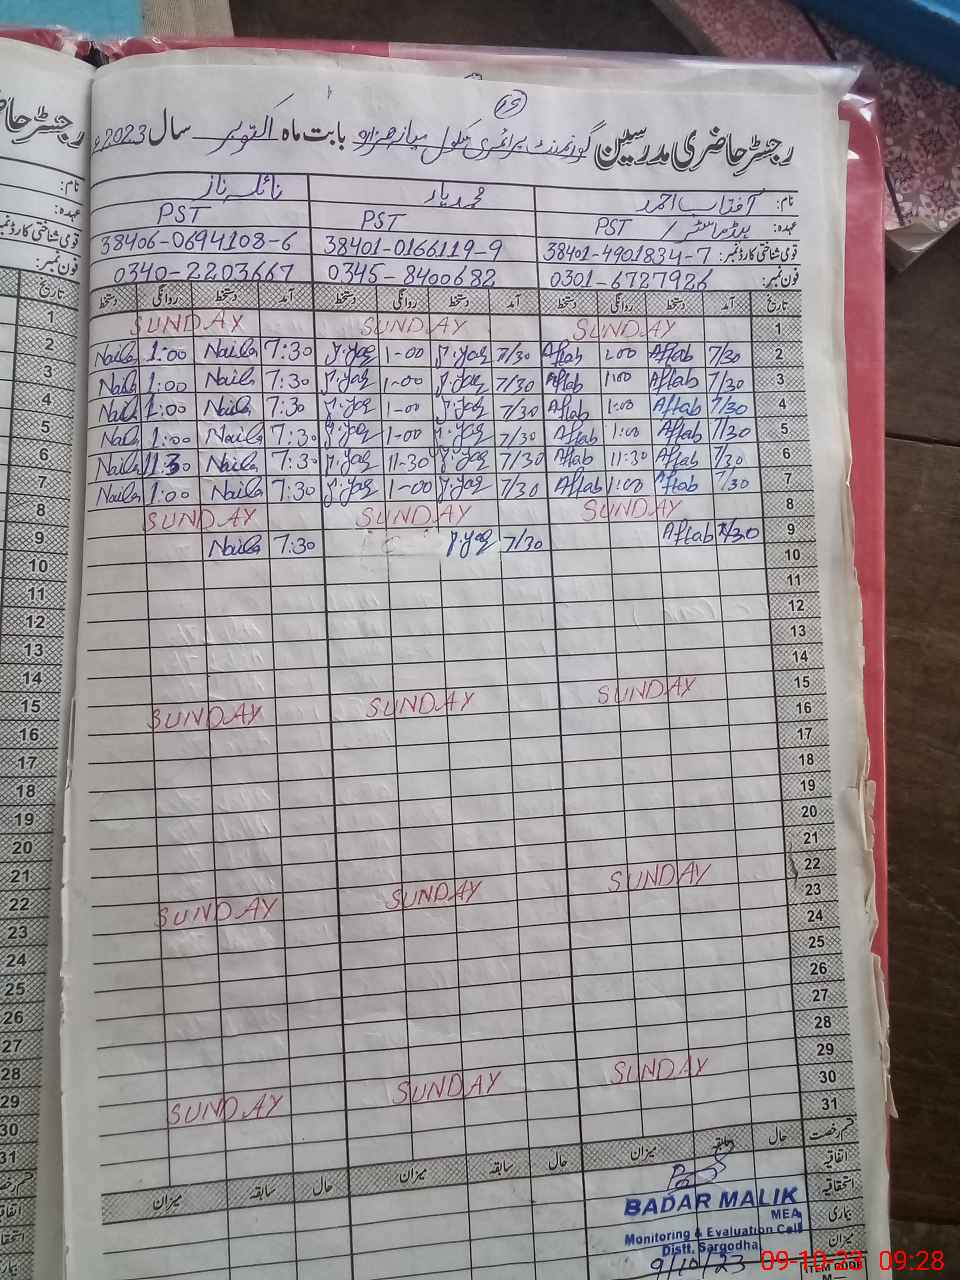 15
رجسٹر حاضری مدرسین گورنمنٹ پرائمری سکول بابت ماہ اکتوبر سال 2023ء
نام: آفتاب احمد محمد یار نائلہ ناز
عہدہ: ہیڈ ماسٹر / PST PST PST
قومی شناختی کارڈ نمبر: 38401-4901834-7 38401-0166119-9 38406-0694108-6
فون نمبر: 0301-6727926 0345-8400682 0340-2203667
تاریخ آمد دستخط روانگی دستخط آمد دستخط روانگی دستخط آمد دستخط روانگی دستخط
1 SUNDAY SUNDAY SUNDAY
2 7/30 Aftab 1:00 Aftab 7/30 M.Yar 1-00 M.Yar 7:30 Naila 1:00 Naila
3 7/30 Aftab 1:00 Aftab 7/30 M.Yar 1-00 M.Yar 7:30 Naila 1:00 Naila
4 7/30 Aftab 1:00 Aftab 7/30 M.Yar 1-00 M.Yar 7:30 Naila 1:00 Naila
5 7/30 Aftab 1:00 Aftab 7/30 M.Yar 1-00 M.Yar 7:30 Naila 1:00 Naila
6 7/30 Aftab 11:30 Aftab 7/30 M.Yar 11-30 M.Yar 7:30 Naila 11:30 Naila
7 7/30 Aftab 1:00 Aftab 7/30 M.Yar 1-00 M.Yar 7:30 Naila 1:00 Naila
8 SUNDAY SUNDAY SUNDAY
9 7/30 Aftab 7/30 M.Yar 7:30 Naila
10
11
12
13
14
15 SUNDAY SUNDAY SUNDAY
16
17
18
19
20
21
22 SUNDAY SUNDAY SUNDAY
23
24
25
26
27
28
29 SUNDAY SUNDAY SUNDAY
30
31
قسم رخصت حال سابقہ میزان حال سابقہ میزان حال سابقہ میزان
اتفاقیہ
استحقاقیہ
بیماری
میزان
BADAR MALIK
MEA
Monitoring & Evaluation Cell
Distt. Sargodha
9/10/23
09-10-23 09:28
ITEM CODE
رجسٹر حاضری
نام:
عہدہ:
قومی شناختی کارڈ نمبر
فون نمبر:
تاریخ
1
2
3
4
5
6
7
8
9
10
11
12
13
14
15
16
17
18
19
20
21
22
23
24
25
26
27
28
29
30
31